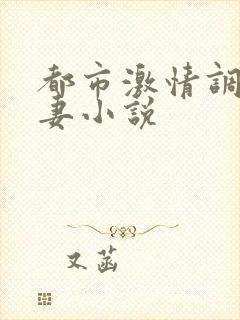 都市激情調
妻小說
又菡